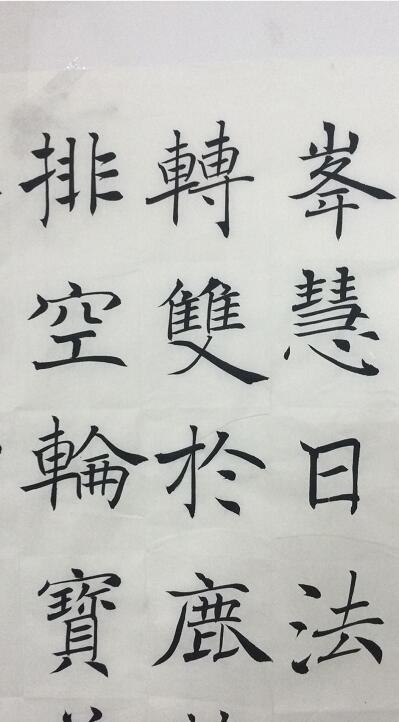 峯慧日法
轉雙於鹿
排空輪寶